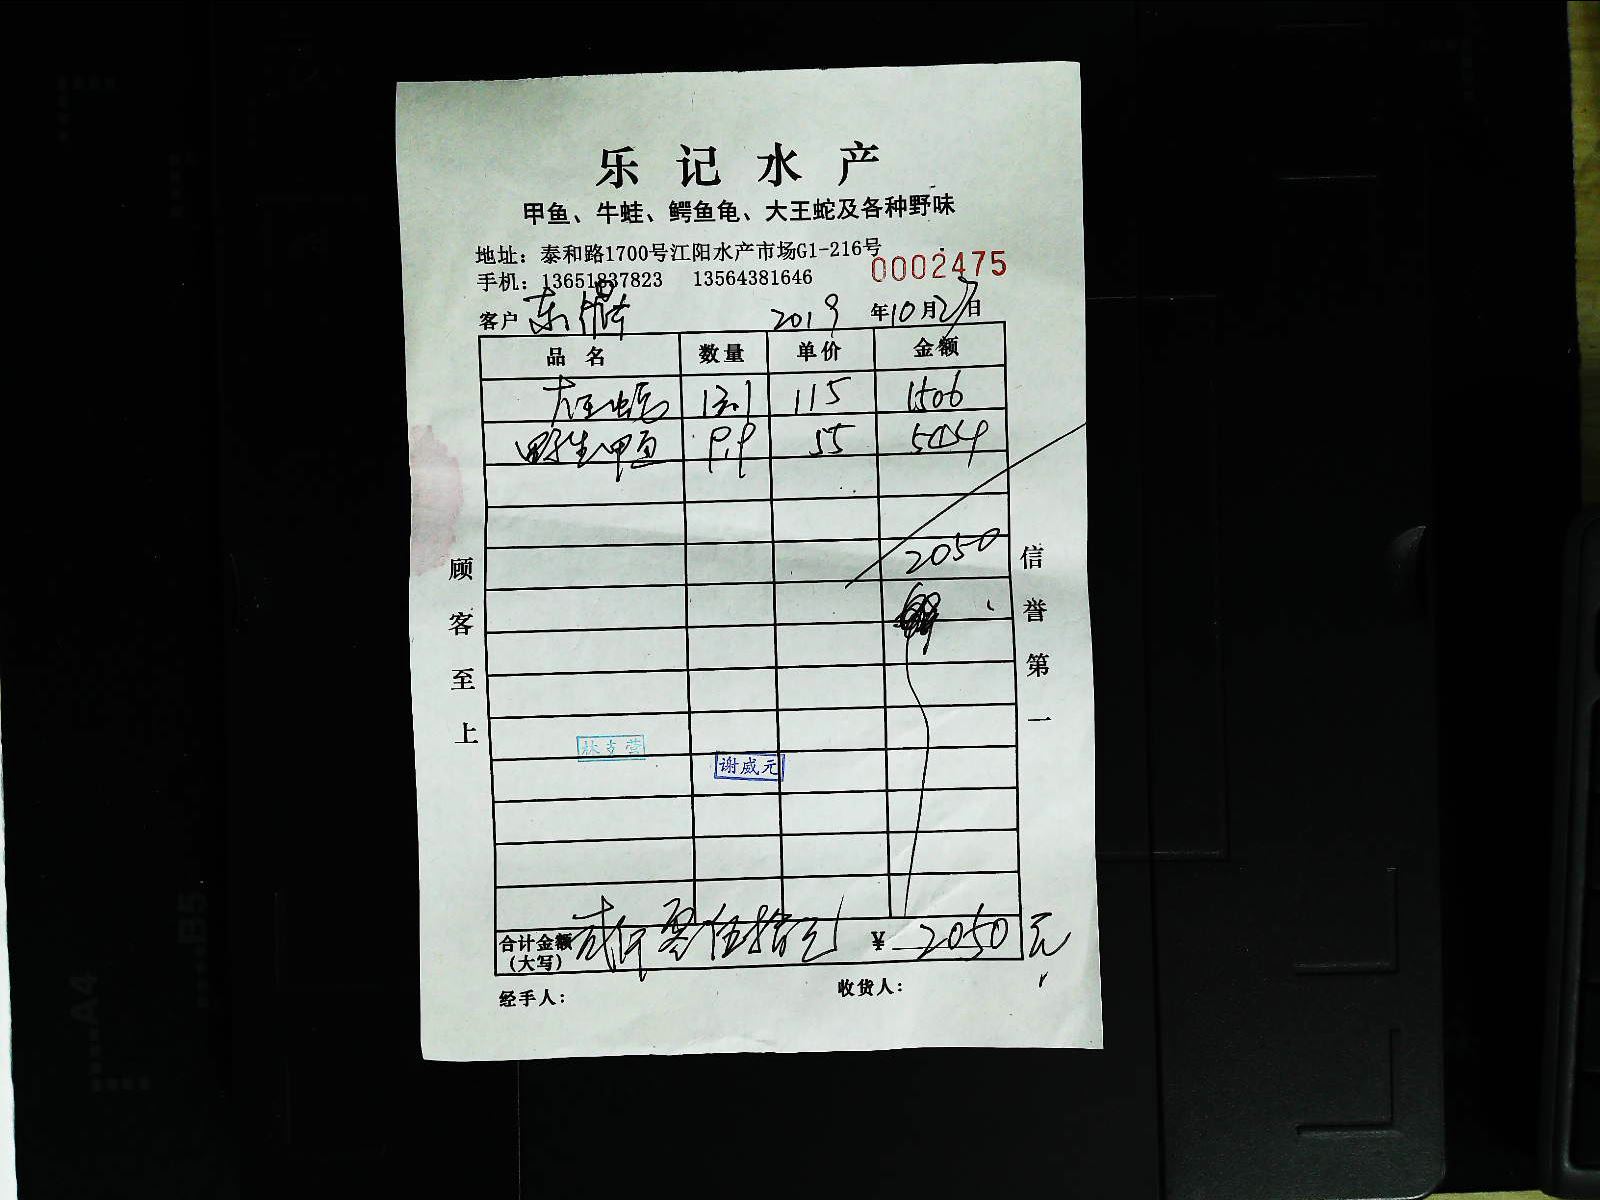 乐记水产
甲鱼、牛蛙、鳄鱼龟、大王蛇及各种野味
地址：泰和路1700号江阳水产市场G1-216号
手机：13651837823 13564381646
0002475
客户 东 2019年10月27日
品名 数量 单价 金额
大王蛇 13.1 115 1506
野生甲鱼 9.9 55 544
2050
顾客至上
信誉第一
林 营
谢威元
合计金额（大写） 贰仟零伍拾元 ¥ 2050元
经手人： 收货人：